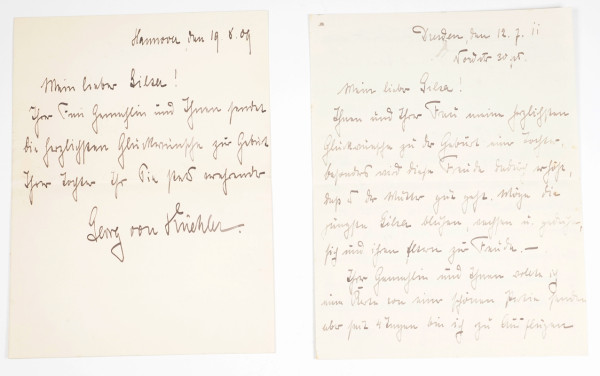 Hannover, den 19. 8. 09
Mein lieber Gilsa!
Ihrer Frau Gemahlin und Ihnen sendet
die herzlichsten Glückwünsche zur Geburt
Ihrer Tochter Ihr Sie stets verehrender
Georg von Küchler.
Dresden, den 12. 7. 11
Mein lieber Gilsa!
Ihnen und Ihrer Frau meine herzlichsten
Glückwünsche zu der Geburt einer Tochter,
besonders wird diese Freude dadurch erhöht,
daß es der Mutter gut geht. Möge die
jüngste Gilsa blühen, wachsen u. gedeihen,
sich und ihren Eltern zur Freude. —
Ihrer Gemahlin und Ihnen wollte ich
eine Karte von einer schönen Partie senden
aber seit 4 Tagen bin ich zu Ausflügen